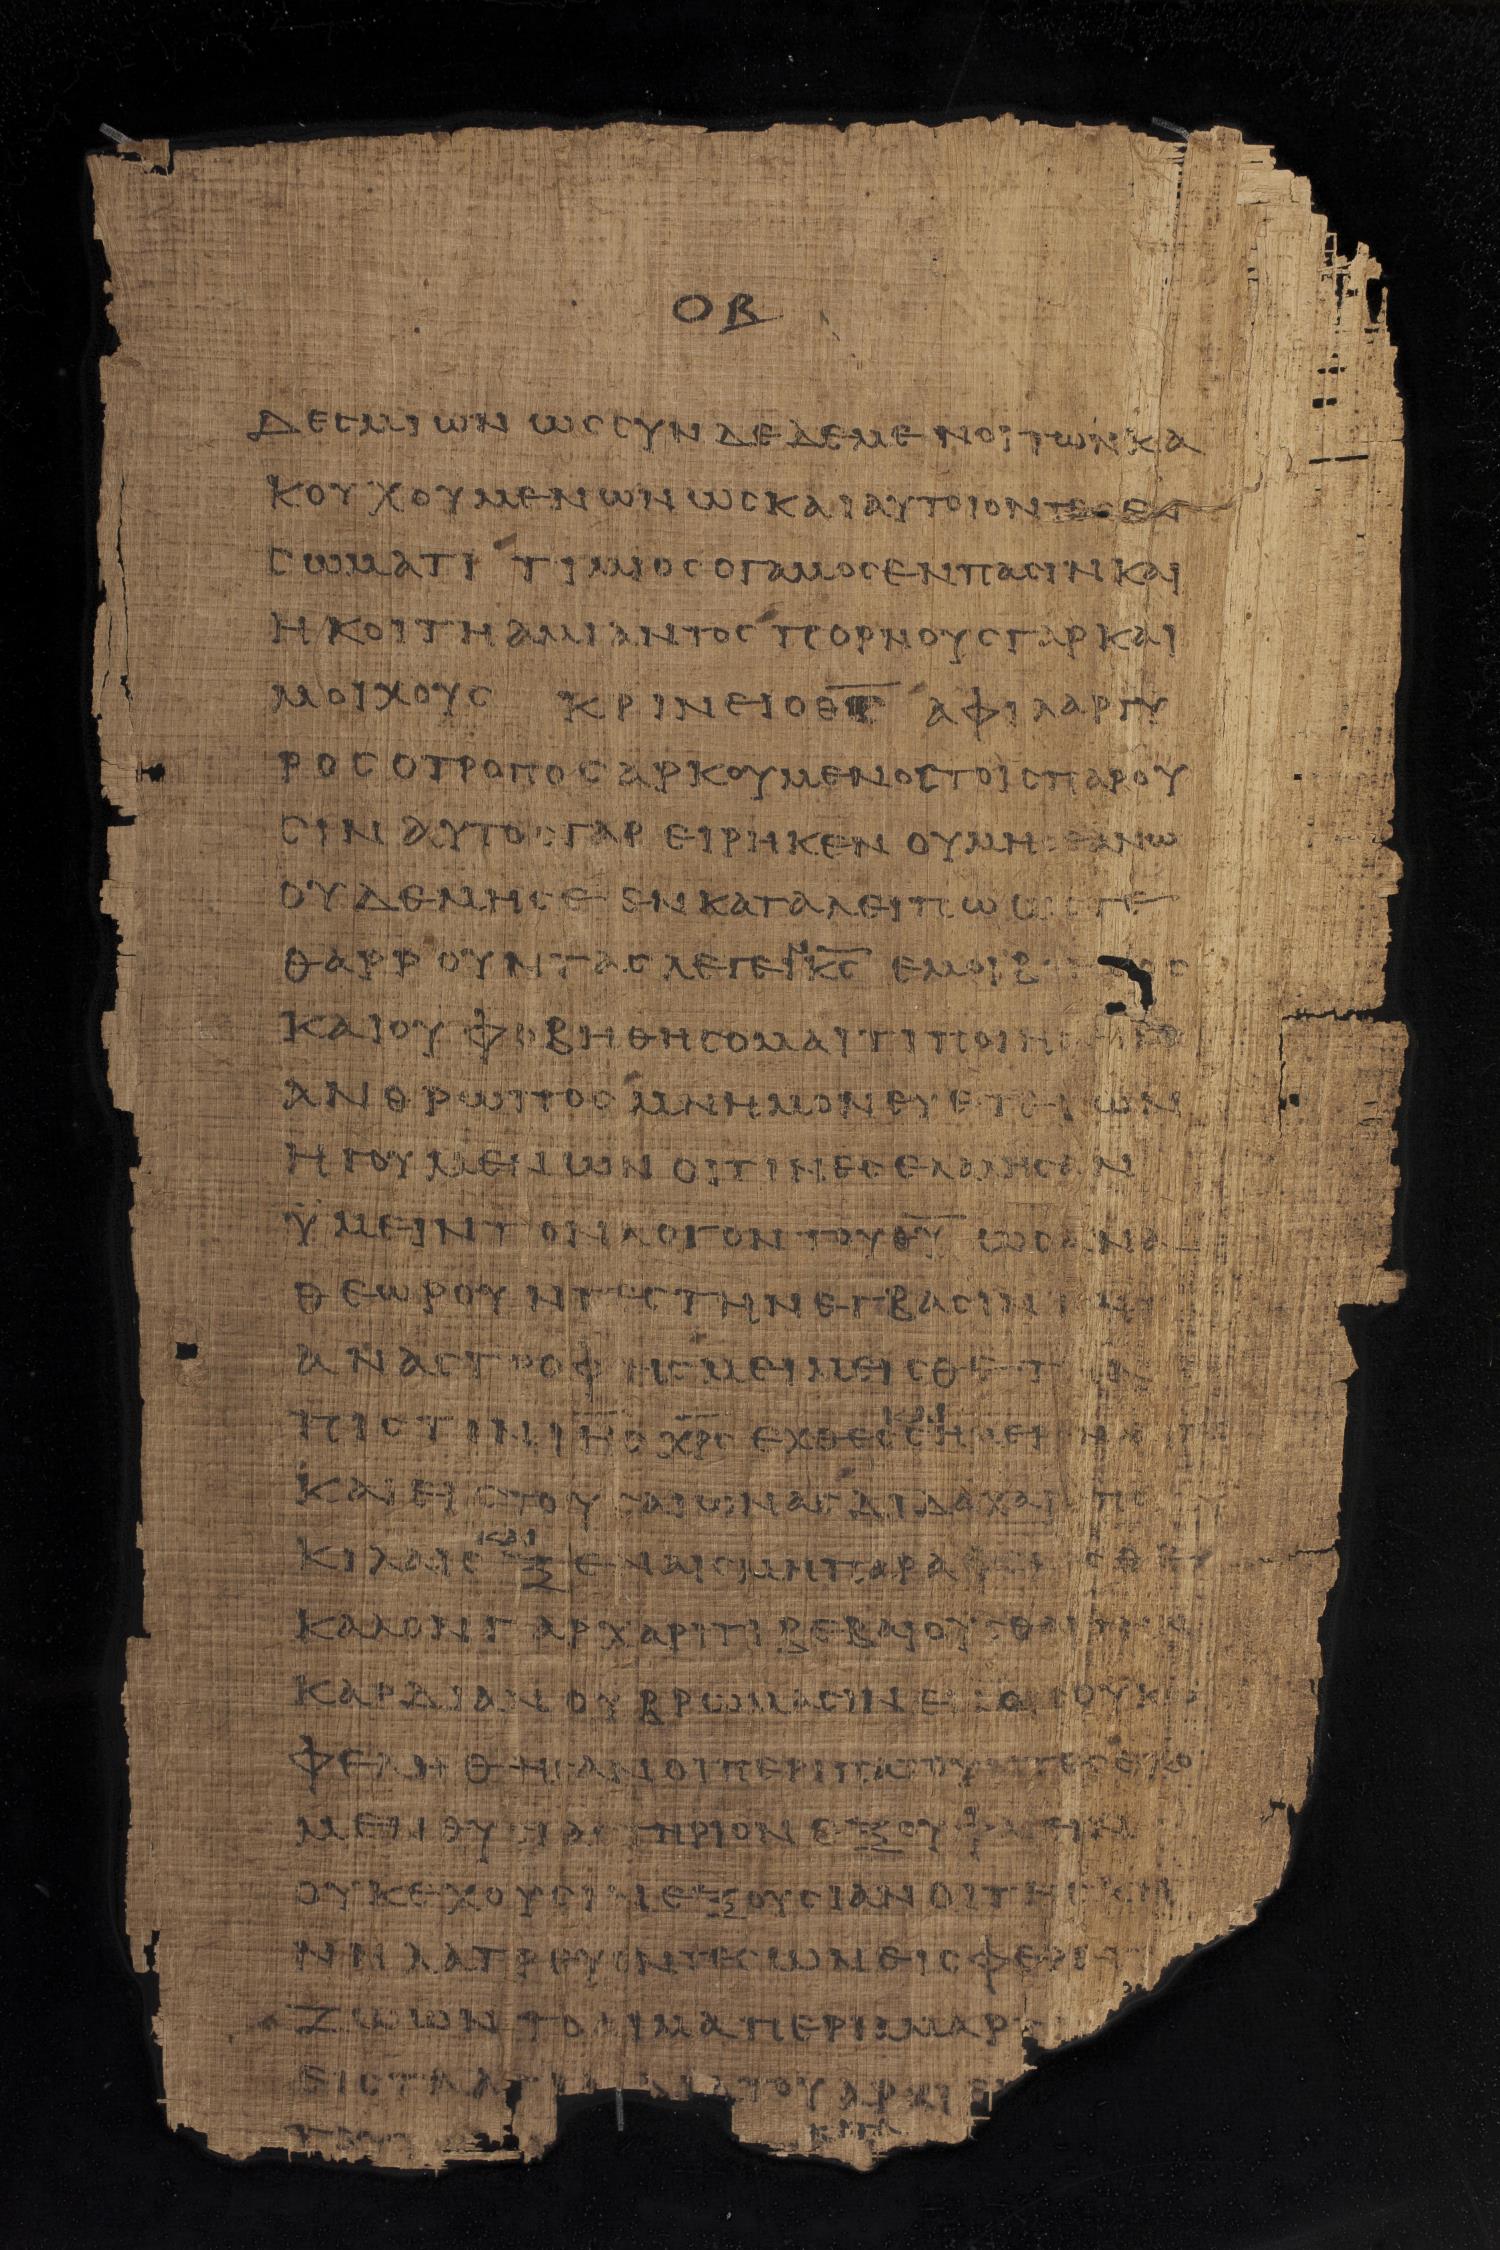 ΟΒ
ΔΕСΜΙΩΝ ΩССΥΝΔΕΔΕΜΕΝΟΙ ΤΩΝ ΚΑ
ΚΟΥΧΟΥΜΕΝΩΝ ΩС ΚΑΙ ΑΥΤΟΙ ΟΝΤΕС ΕΝ
СΩΜΑΤΙ ΤΙΜΙΟС Ο ΓΑΜΟС ΕΝ ΠΑСΙΝ ΚΑΙ
Η ΚΟΙΤΗ ΑΜΙΑΝΤΟС ΠΟΡΝΟΥС ΓΑΡ ΚΑΙ
ΜΟΙΧΟΥС ΚΡΙΝΕΙ Ο Θ̅С̅ ΑΦΙΛΑΡΓΥ
ΡΟС Ο ΤΡΟΠΟС ΑΡΚΟΥΜΕΝΟС ΤΟΙС ΠΑΡΟΥ
СΙΝ ΑΥΤΟС ΓΑΡ ΕΙΡΗΚΕΝ ΟΥ ΜΗ СΕ ΑΝΩ
ΟΥΔΕ ΜΗ СΕ ΕΝΚΑΤΑΛΕΙΠΩ ΩСΤΕ
ΘΑΡΡΟΥΝΤΑС ΛΕΓΕΙΝ Κ̅С̅ ΕΜΟΙ
ΚΑΙ ΟΥ ΦΟΒΗΘΗСΟΜΑΙ ΤΙ
ΑΝΘΡΩΠΟС ΜΝΗΜΟΝΕΥΕΤΕ ΤΩΝ
ΗΓΟΥΜΕΝΩΝ ΟΙΤΙΝΕС ΕΛΑΛΗСΑΝ
ΫΜΕΙΝ ΤΟΝ ΛΟΓΟΝ ΤΟΥ Θ̅Υ̅ ΩС ΑΝΑ
ΘΕΩΡΟΥΝΤΕС ΤΗΝ ΕΓΒΑСΙΝ
ΑΝΑСΤΡΟΦΗС ΜΕΙΜΕΙСΘΕ ΤΗΝ
ΠΙСΤΙΝ Ι̅Η̅С̅ Χ̅Ρ̅С̅ ΕΧΘΕС ΚΑΙ СΗΜΕΡΟΝ
ΚΑΙ ΕΙС ΤΟΥС ΑΙΩΝΑС ΔΙΔΑΧΑΙС ΠΟΙ
ΚΙΛΑΙС ΚΑΙ ΞΕΝΑΙС ΜΗ ΠΑΡΑΦΕΡΕСΘΕ
ΚΑΛΟΝ ΓΑΡ ΧΑΡΙΤΙ ΒΕΒΑΙΟΥСΘΑΙ ΤΗΝ
ΚΑΡΔΙΑΝ ΟΥ ΒΡΩΜΑСΙΝ ΕΝ ΟΙС ΟΥΚ Ω
ΦΕΛΗΘΗСΑΝ ΟΙ ΠΕΡΙΠΑΤΟΥΝΤΕС ΕΧΟ
ΜΕΝ ΘΥСΙΑСΤΗΡΙΟΝ ΕΞ ΟΥ ΦΑΓΕΙΝ
ΟΥΚ ΕΧΟΥСΙΝ ΕΞΟΥСΙΑΝ ΟΙ ΤΗ СΚΗ
ΝΗ ΛΑΤΡΕΥΟΝΤΕС ΩΝ ΕΙСΦΕΡΕΤΑΙ
ΖΩΩΝ ΤΟ ΑΙΜΑ ΠΕΡΙ ΑΜΑΡΤ
ΕΙС ΤΑ ΑΓΙΑ ΔΙΑ ΤΟΥ ΑΡΧΙΕΡ